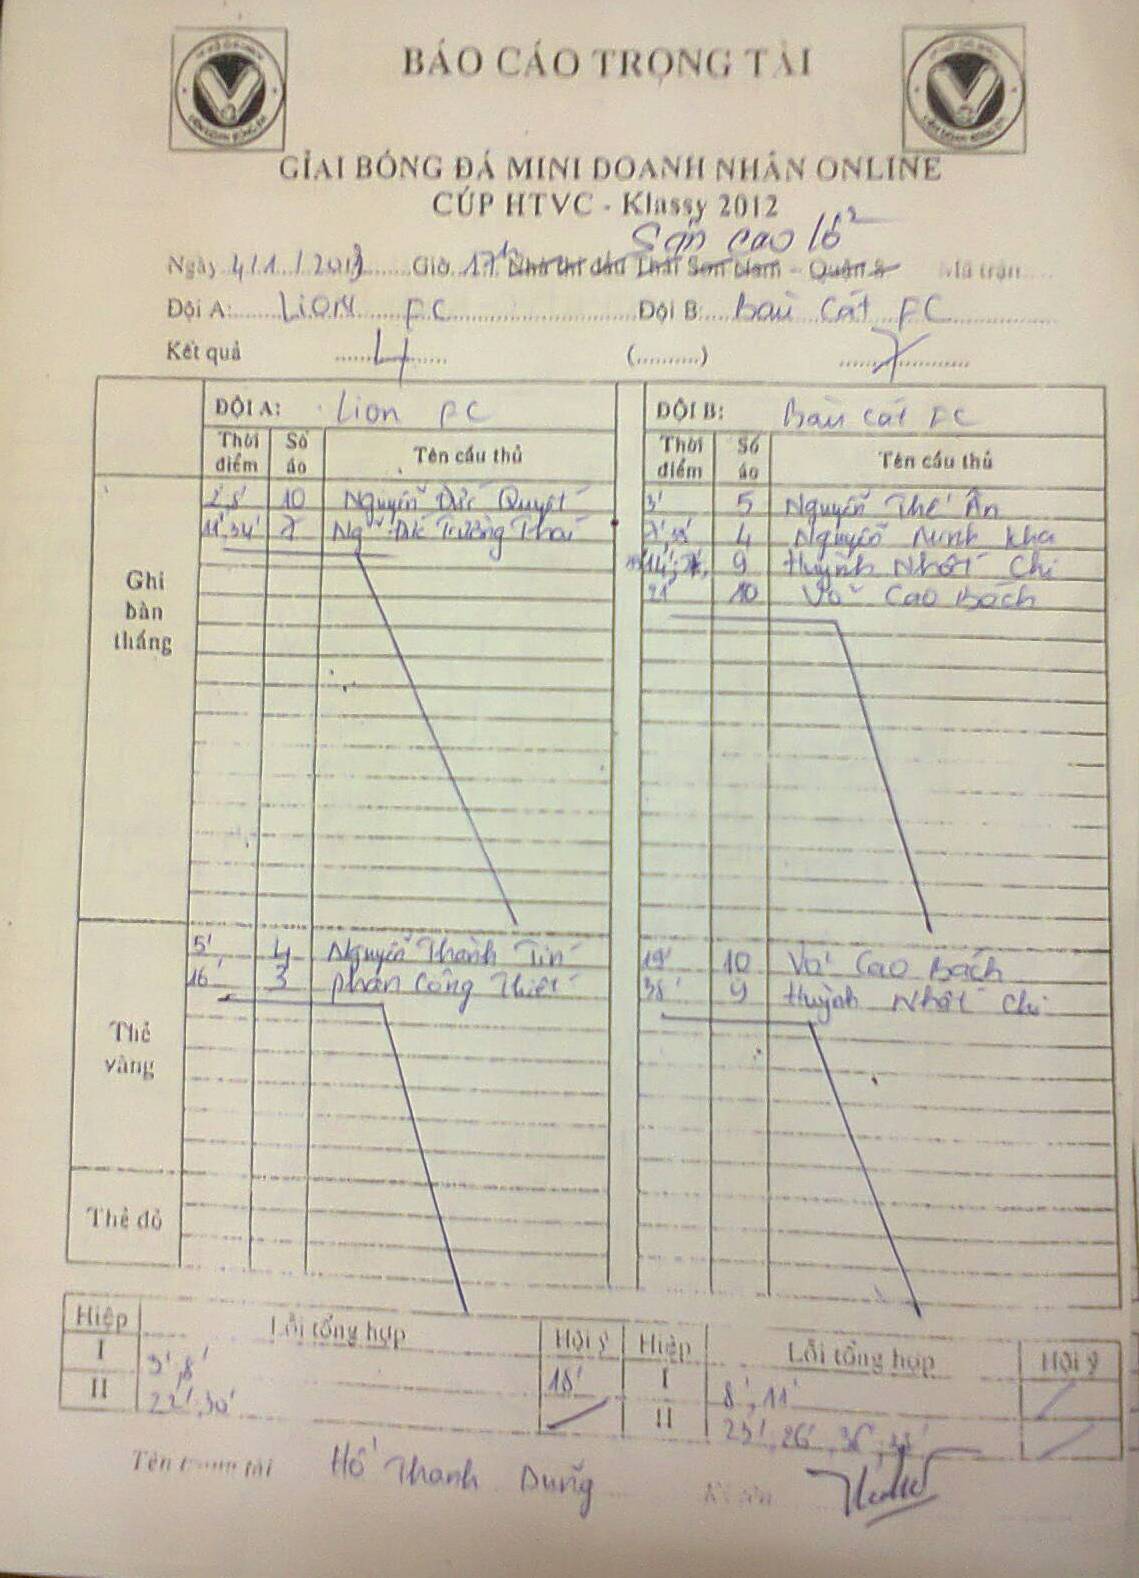 BÁO CÁO TRỌNG TÀI
GIẢI BÓNG ĐÁ MINI DOANH NHÂN ONLINE
CÚP HTVC - Klassy 2012
Sân cao lỗ
Ngày 4/1/2013 Giờ 17h Nhà thi đấu Thái Sơn Nam - Quận 8 Mã trận
Đội A: LiON FC Đội B: Bàu Cát FC
Kết quả 4 (..........) 7
ĐỘI A: Lion FC ĐỘI B: Bàu Cát FC
Thời điểm Số áo Tên cầu thủ Thời điểm Số áo Tên cầu thủ
Ghi bàn thắng
2', 8' 10 Nguyễn Đức Quyết 3' 5 Nguyễn Thế Ân
11', 34' 7 Ngỹ Đức Trường Thái 4 Nguyễn Minh Kha
14', 9 Huỳnh Nhất Chi
21' 10 Võ Cao Bách
Thẻ vàng
5' 4 Nguyễn Thành Tín 19' 10 Võ Cao Bách
16' 3 Phan Công Thiết 38' 9 Huỳnh Nhất Chi
Thẻ đỏ
Hiệp Lỗi tổng hợp Hội ý Hiệp Lỗi tổng hợp Hội ý
I 8' 18' I 8', 11'
II 22', 30' II 26', 36',
Tên trọng tài Hồ Thanh Dũng Ký tên